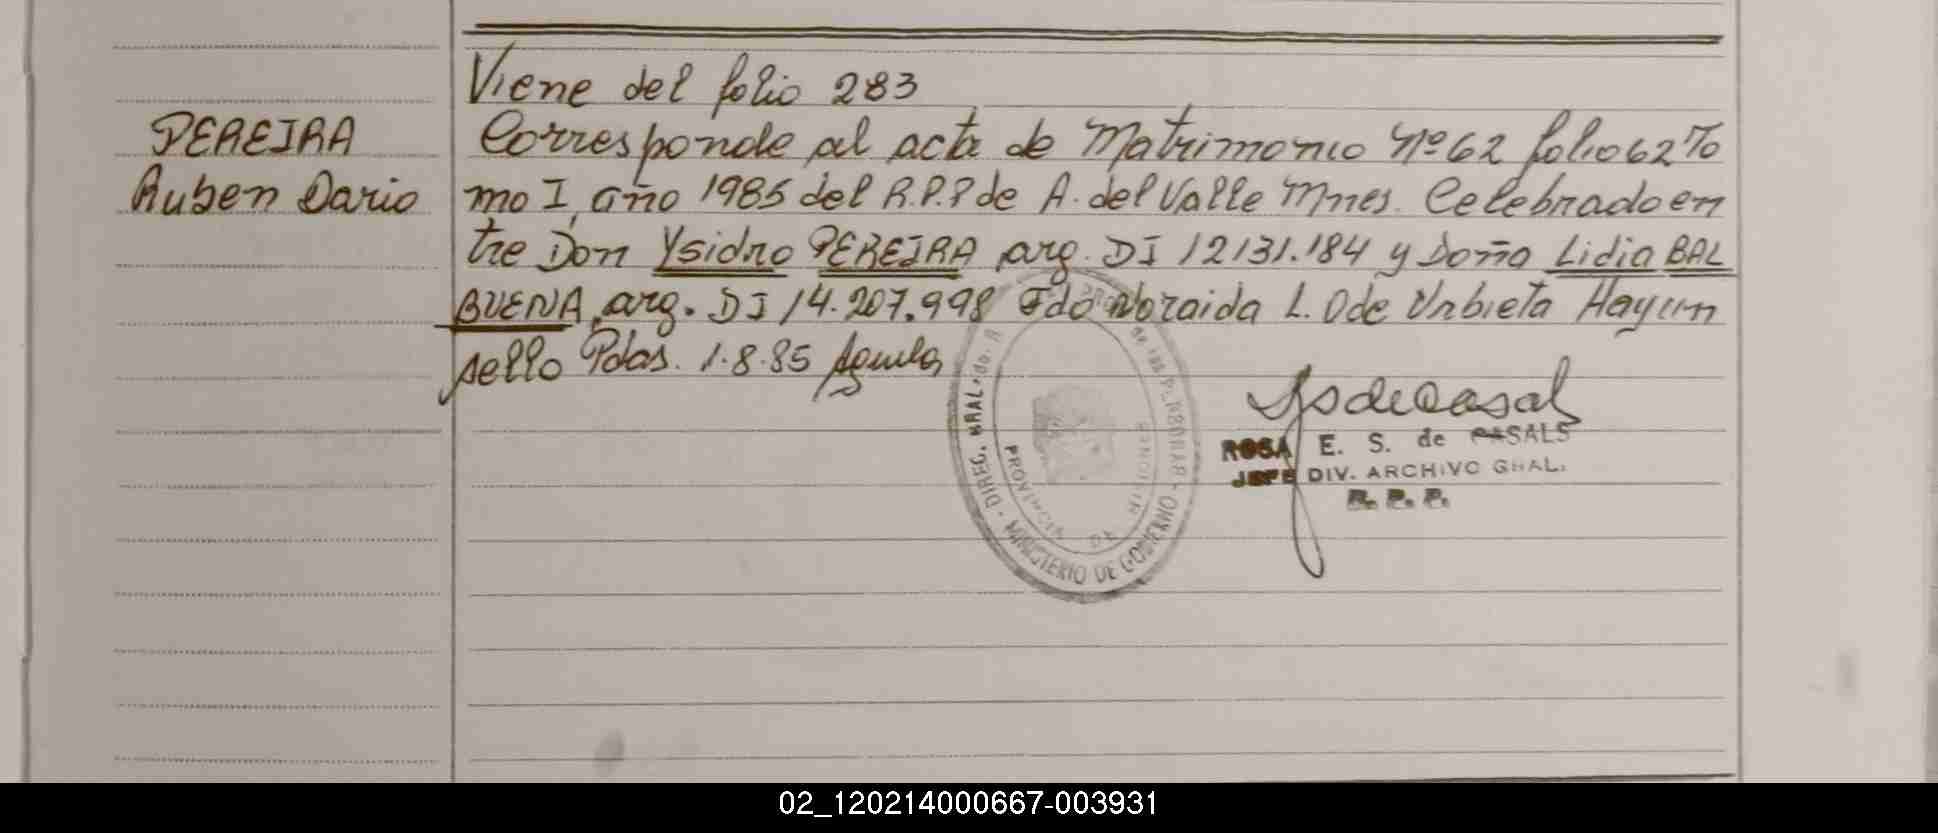 Viene del folio 283
PEREIRA
Corresponde al acta de Matrimonio Nº 62 folio 62 To
Ruben Dario
mo I, año 1985 del R.P.P de A. del Valle Mnes. Celebrado en
tre Don Ysidro PEREIRA arg. DI 12131.184 y Doña Lidia BAL
BUENA, arg. DI 14.207.998 Fdo Noraida L. O de Urbieta Hay un
sello Pdas. 1.8.85
ROSA E. S. de CASALS
JEFE DIV. ARCHIVO GRAL.
R. P. P.
DIREC. GRAL. de las PERSONAS - MINISTERIO DE GOBIERNO
PROVINCIA DE MISIONES
02_120214000667-003931